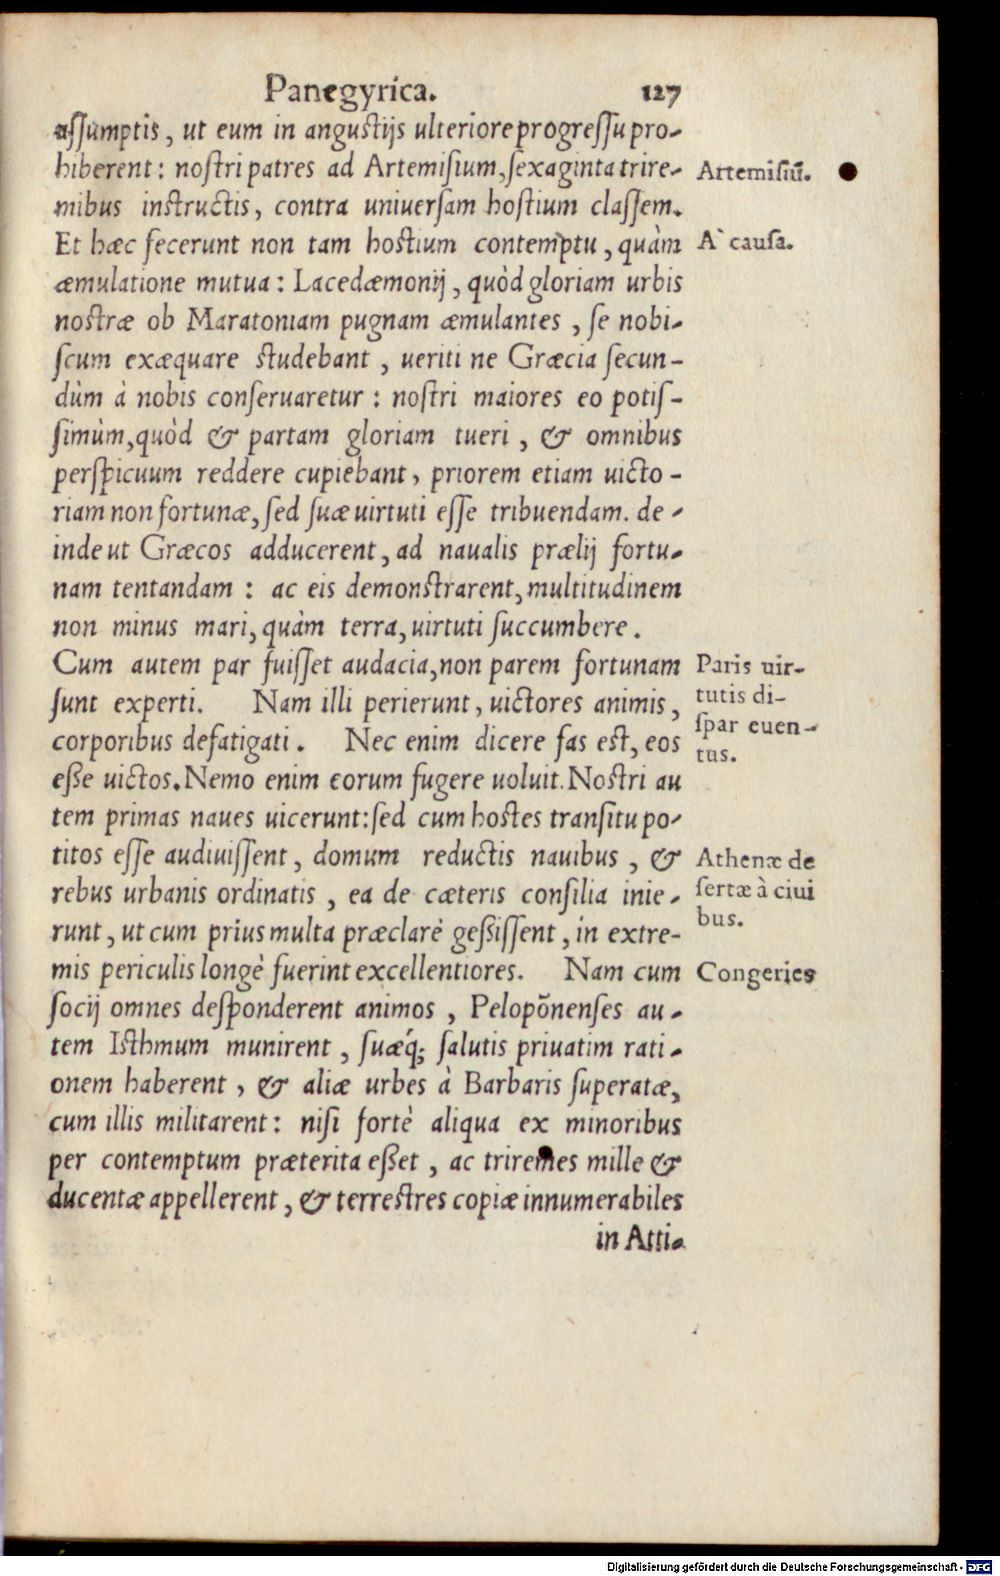 Panegyrica. 127
aſſumptis, ut eum in anguſtijs ulteriore progreſſu pro-
hiberent: noſtri patres ad Artemiſium, ſexaginta trire-
Artemiſiū.
mibus inſtructis, contra uniuerſam hoſtium claſſem.
Et hæc fecerunt non tam hoſtium contemptu, quàm
A` cauſa.
æmulatione mutua: Lacedæmonij, quòd gloriam urbis
noſtræ ob Maratoniam pugnam æmulantes, ſe nobi-
ſcum exæquare ſtudebant, ueriti ne Græcia ſecun-
dùm à nobis conſeruaretur: noſtri maiores eo potiſ-
ſimùm, quòd & partam gloriam tueri, & omnibus
perſpicuum reddere cupiebant, priorem etiam uicto-
riam non fortunæ, ſed ſuæ uirtuti eſſe tribuendam. de-
inde ut Græcos adducerent, ad naualis prælij fortu-
nam tentandam: ac eis demonſtrarent, multitudinem
non minus mari, quàm terra, uirtuti ſuccumbere.
Cum autem par fuiſſet audacia, non parem fortunam
ſunt experti. Nam illi perierunt, uictores animis,
corporibus defatigati. Nec enim dicere fas eſt, eos
Paris uir-
tutis di-
ſpar euen-
tus.
eße uictos. Nemo enim eorum fugere uoluit. Noſtri au
tem primas naues uicerunt: ſed cum hoſtes tranſitu po-
titos eſſe audiuiſſent, domum reductis nauibus, &
rebus urbanis ordinatis, ea de cæteris conſilia inie-
runt, ut cum prius multa præclarè geßiſſent, in extre-
Athenæ de
ſertæ à ciui
bus.
mis periculis longè fuerint excellentiores. Nam cum
Congeries
ſocij omnes deſponderent animos, Pelopōnenſes au-
tem Iſthmum munirent, ſuæq́; ſalutis priuatim rati-
onem haberent, & aliæ urbes à Barbaris ſuperatæ,
cum illis militarent: niſi fortè aliqua ex minoribus
per contemptum præterita eßet, ac triremes mille &
ducentæ appellerent, & terreſtres copiæ innumerabiles
in Atti-
Digitalisierung gefördert durch die Deutsche Forschungsgemeinschaft - DFG